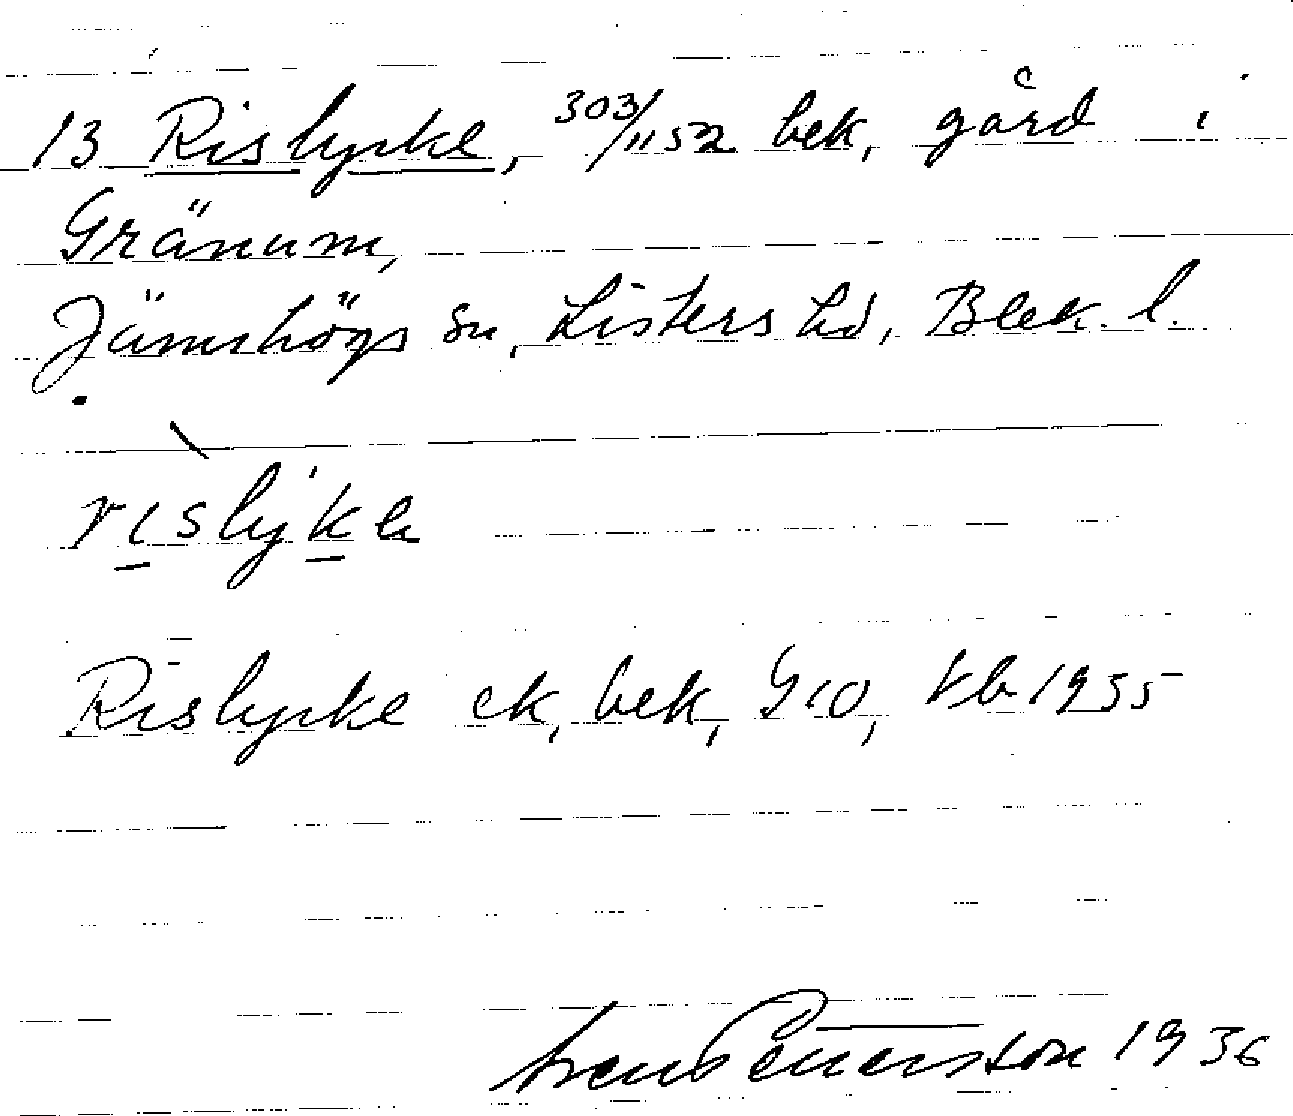 13 Rislycke, 303/1152 bek, gård i
Gränum,
Jämshögs sn, Listers hd, Blek. l.
rislykə
Rislycke ek, bek, G10, kb 1935
Sven Pettersson 1936